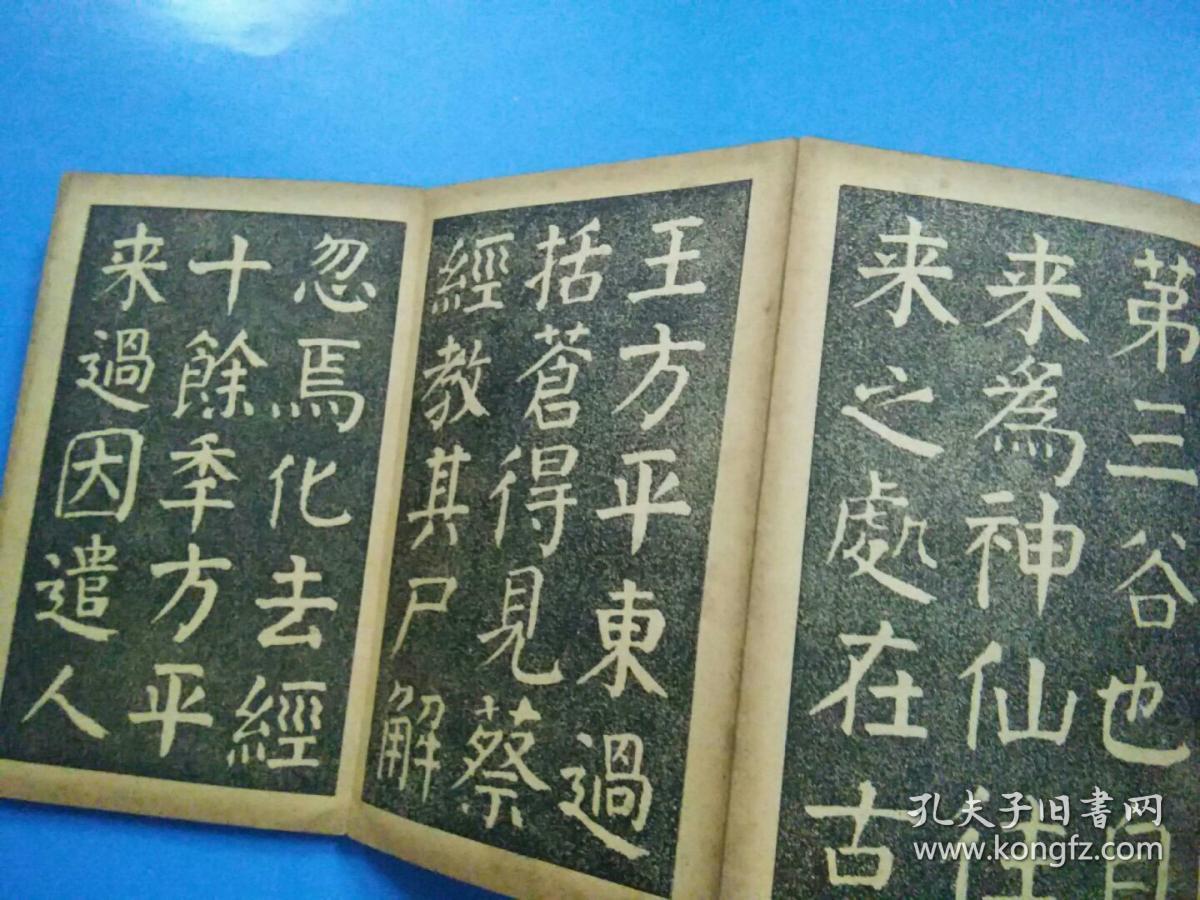 第三谷也自
来為神仙往
来之處在古
王方平東過
括蒼得見蔡
經教其尸解
忽焉化去經
十餘季方平
来過因遣人
孔夫子旧書网
www.kongfz.com